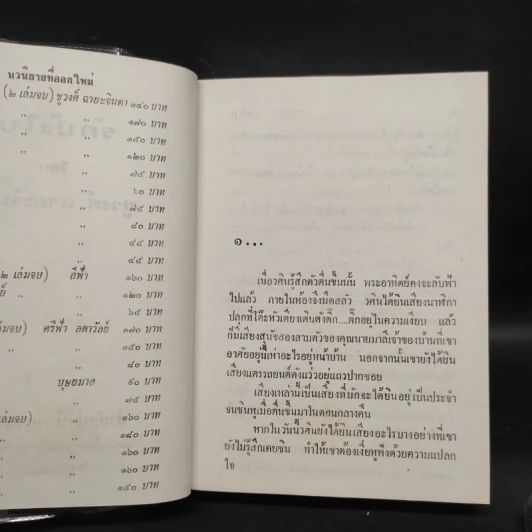 นวนิยายที่ออกใหม่
(๒ เล่มจบ) ชูวงศ์ ฉายะจินดา ๑๔๐ บาท
,, ,, ๑๗๐ บาท
,, ,, ๑๕๐ บาท
,, ,, ๑๒๐ บาท
,, ๗๕ บาท
,, ๖๐ บาท
,, ๗๕ บาท
,, ๘๐ บาท
,, ๔๕ บาท
,, ๔๕ บาท
๒ เล่มจบ) สีฟ้า ๑๖๐ บาท
,, ,, ๑๒๐ บาท
,, ๖๕ บาท
เล่มจบ) ศรีฟ้า ลดาวัลย์ ๑๗๐ บาท
,, ,, ๑๕๐ บาท
,, ๘๐ บาท
บุษยมาส ๙๐ บาท
,, ๗๕ บาท
เล่มจบ) ,, ๑๖๐ บาท
,, ,, ๑๘๐ บาท
,, ,, ๑๖๐ บาท
,, ,, ๑๖๐ บาท
,, ,, ๑๕๐ บาท
๑...
เมื่อวศินรู้สึกตัวตื่นขึ้นนั้น พระอาทิตย์คงจะลับฟ้า
ไปแล้ว ภายในห้องจึงมืดสลัว วศินได้ยินเสียงนาฬิกา
ปลุกที่โต๊ะหัวเตียงเดินดังติ๊ก....ติ๊กอยู่ในความเงียบ แล้ว
ก็มีเสียงสุนัขสองสามตัวของคุณนายมาลีเจ้าของบ้านที่เขา
อาศัยอยู่นี้เห่าอะไรอยู่หน้าบ้าน นอกจากนั้นเขายังได้ยิน
เสียงแตรรถยนต์ดังแว่วอยู่แถวปากซอย
เสียงเหล่านี้เป็นเสียงที่มักจะได้ยินอยู่เป็นประจำ
จนชินหูเมื่อตื่นขึ้นมาในตอนกลางคืน
หากในวันนี้วศินยังได้ยินเสียงอะไรบางอย่างที่เขา
ยังไม่รู้สึกเคยชิน ทำให้เขาต้องเงี่ยหูฟังด้วยความแปลก
ใจ